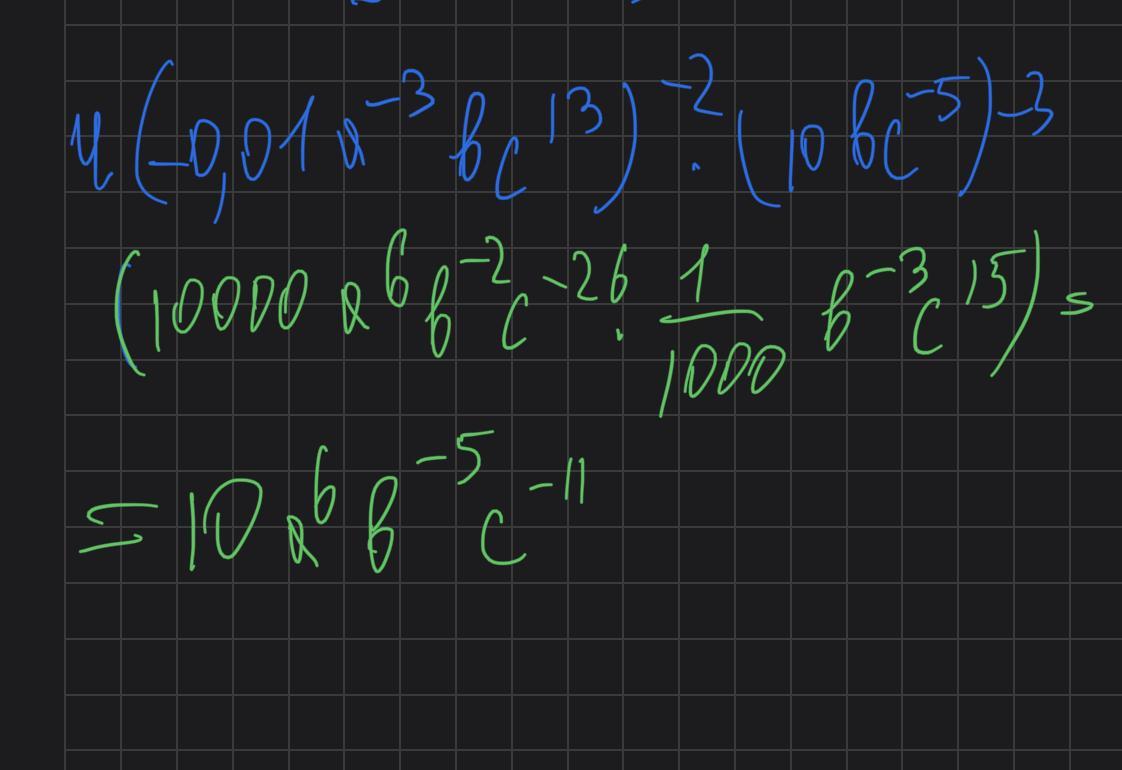 4. (-0,01a⁻³bc¹³)⁻² · (10bc⁻⁵)⁻³
(10000a⁶b⁻²c⁻²⁶ · 1/1000 b⁻³c¹⁵) =
= 10a⁶b⁻⁵c⁻¹¹